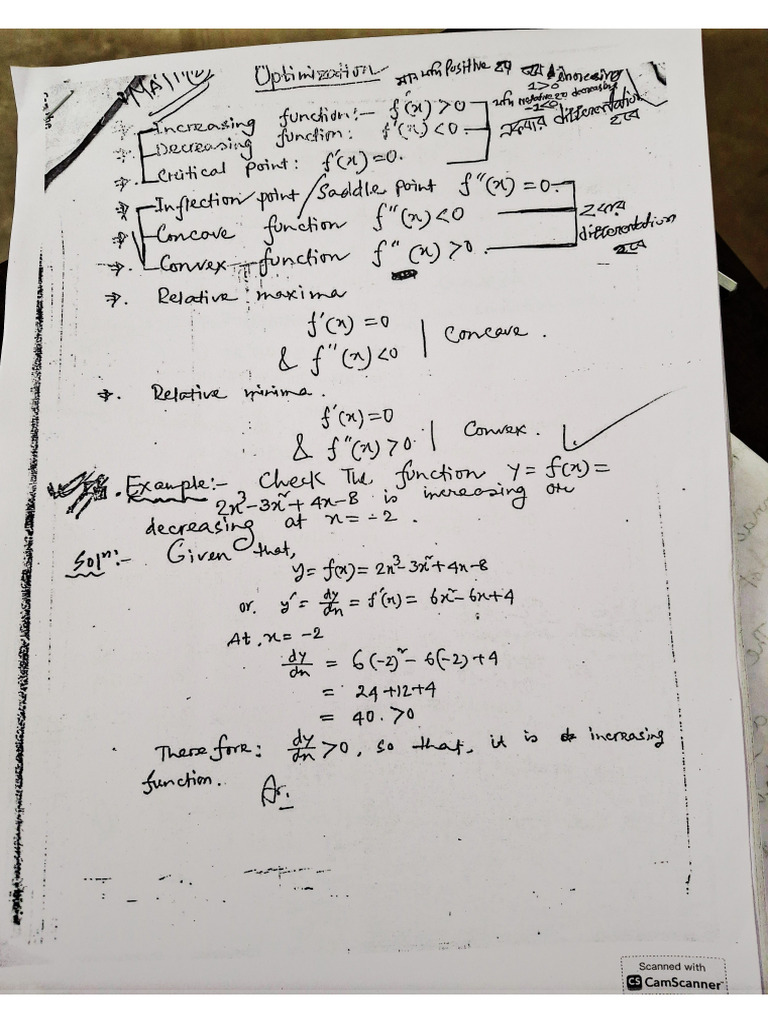 MATH
Optimization
মান যদি positive হয় তবে increasing
1>0
যদি relative হয় decreasing
-1<0
⇒. Increasing function:- f'(x) > 0
Decreasing function: f'(x) < 0.
একবার differentiation হবে
⇒. Critical point: f'(x) = 0.
⇒. Inflection point / Saddle point f''(x) = 0.
⇒. Concave function f''(x) < 0
2 বার differentiation হবে
⇒. Convex function f''(x) > 0.
⇒. Relative maxima
f'(x) = 0
& f''(x) < 0 | Concave.
⇒. Relative minima.
f'(x) = 0
& f''(x) > 0 | Convex.
Example:- Check The function y = f(x) =
2x³-3x²+4x-8 is increasing or
decreasing at x = -2.
Solⁿ:- Given that,
y = f(x) = 2x³-3x²+4x-8
or. y' = dy/dx = f'(x) = 6x²-6x+4
At, x = -2
dy/dx = 6(-2)² - 6(-2)+4
= 24+12+4
= 40. >0
Therefore: dy/dx > 0, so that, it is increasing
function. Ar.
Scanned with
CS CamScanner